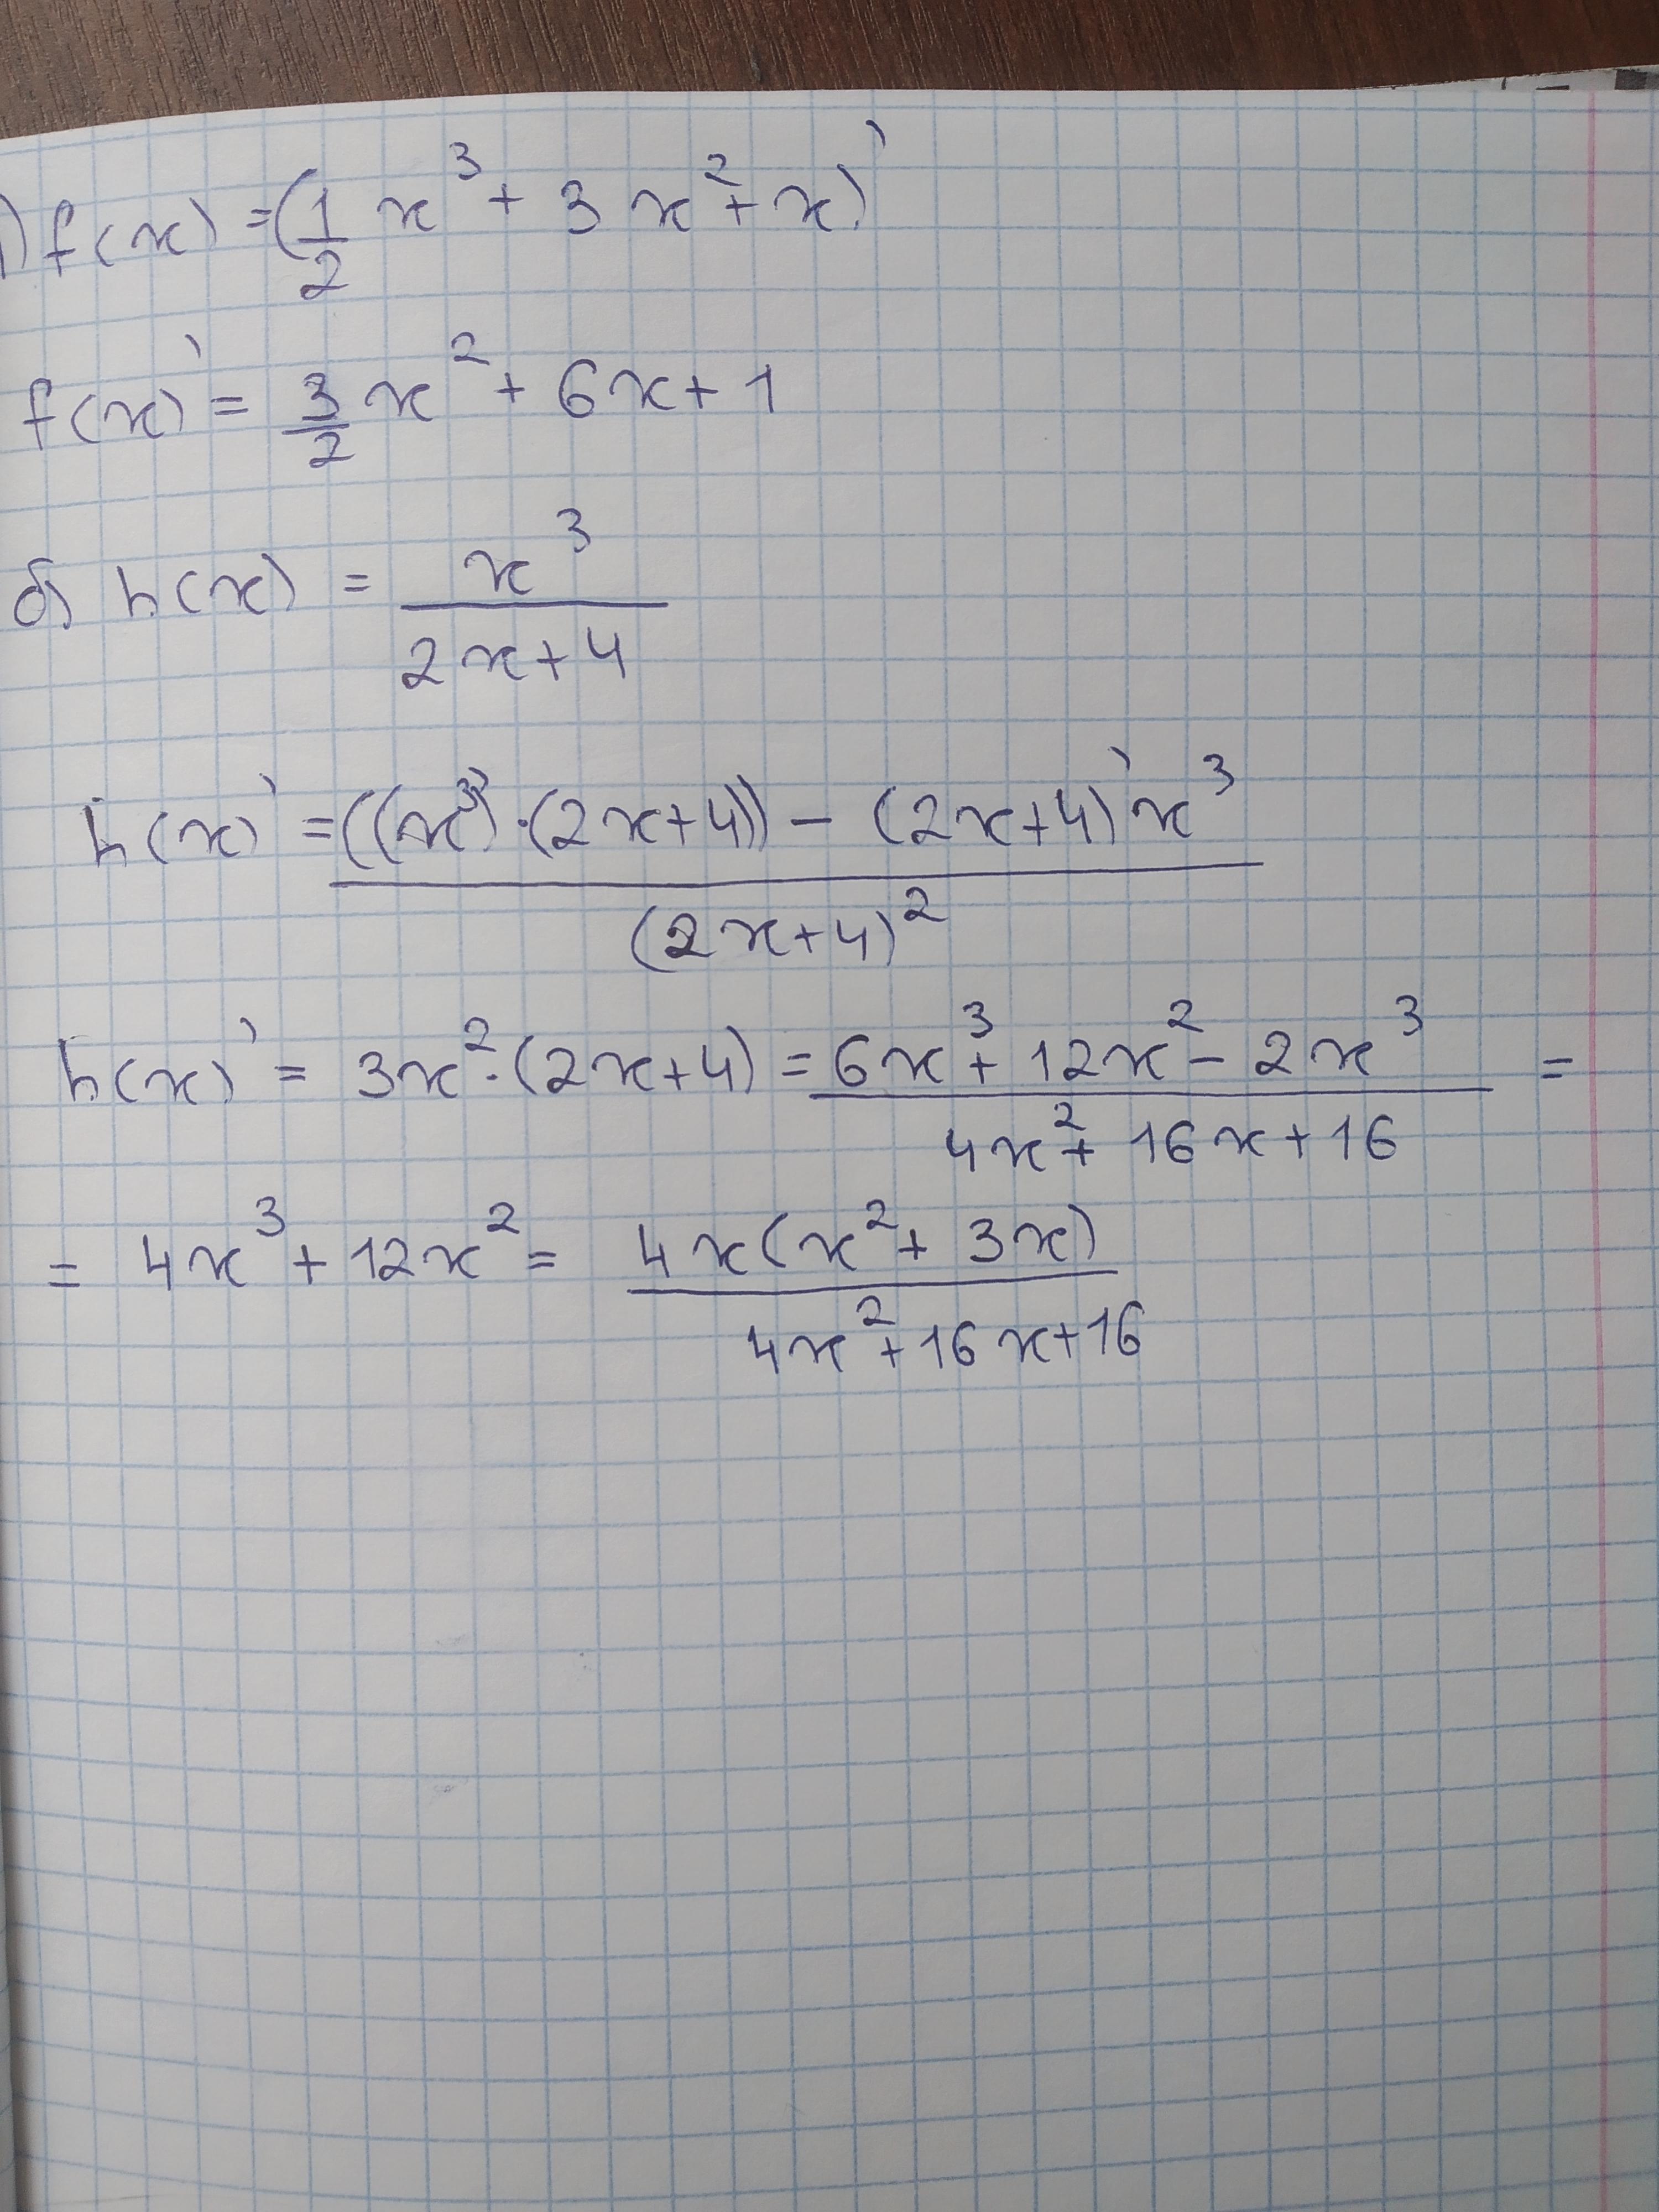 ) f(x) = (1/2 x³ + 3x² + x)'
f(x)' = 3/2 x² + 6x + 1
б) h(x) = x³ / 2x+4
h(x)' = ((x³)'·(2x+4)) − (2x+4)'x³ / (2x+4)²
h(x)' = 3x²·(2x+4) = 6x³ + 12x² − 2x³ / 4x² + 16x + 16 =
= 4x³ + 12x² = 4x(x² + 3x) / 4x² + 16x + 16